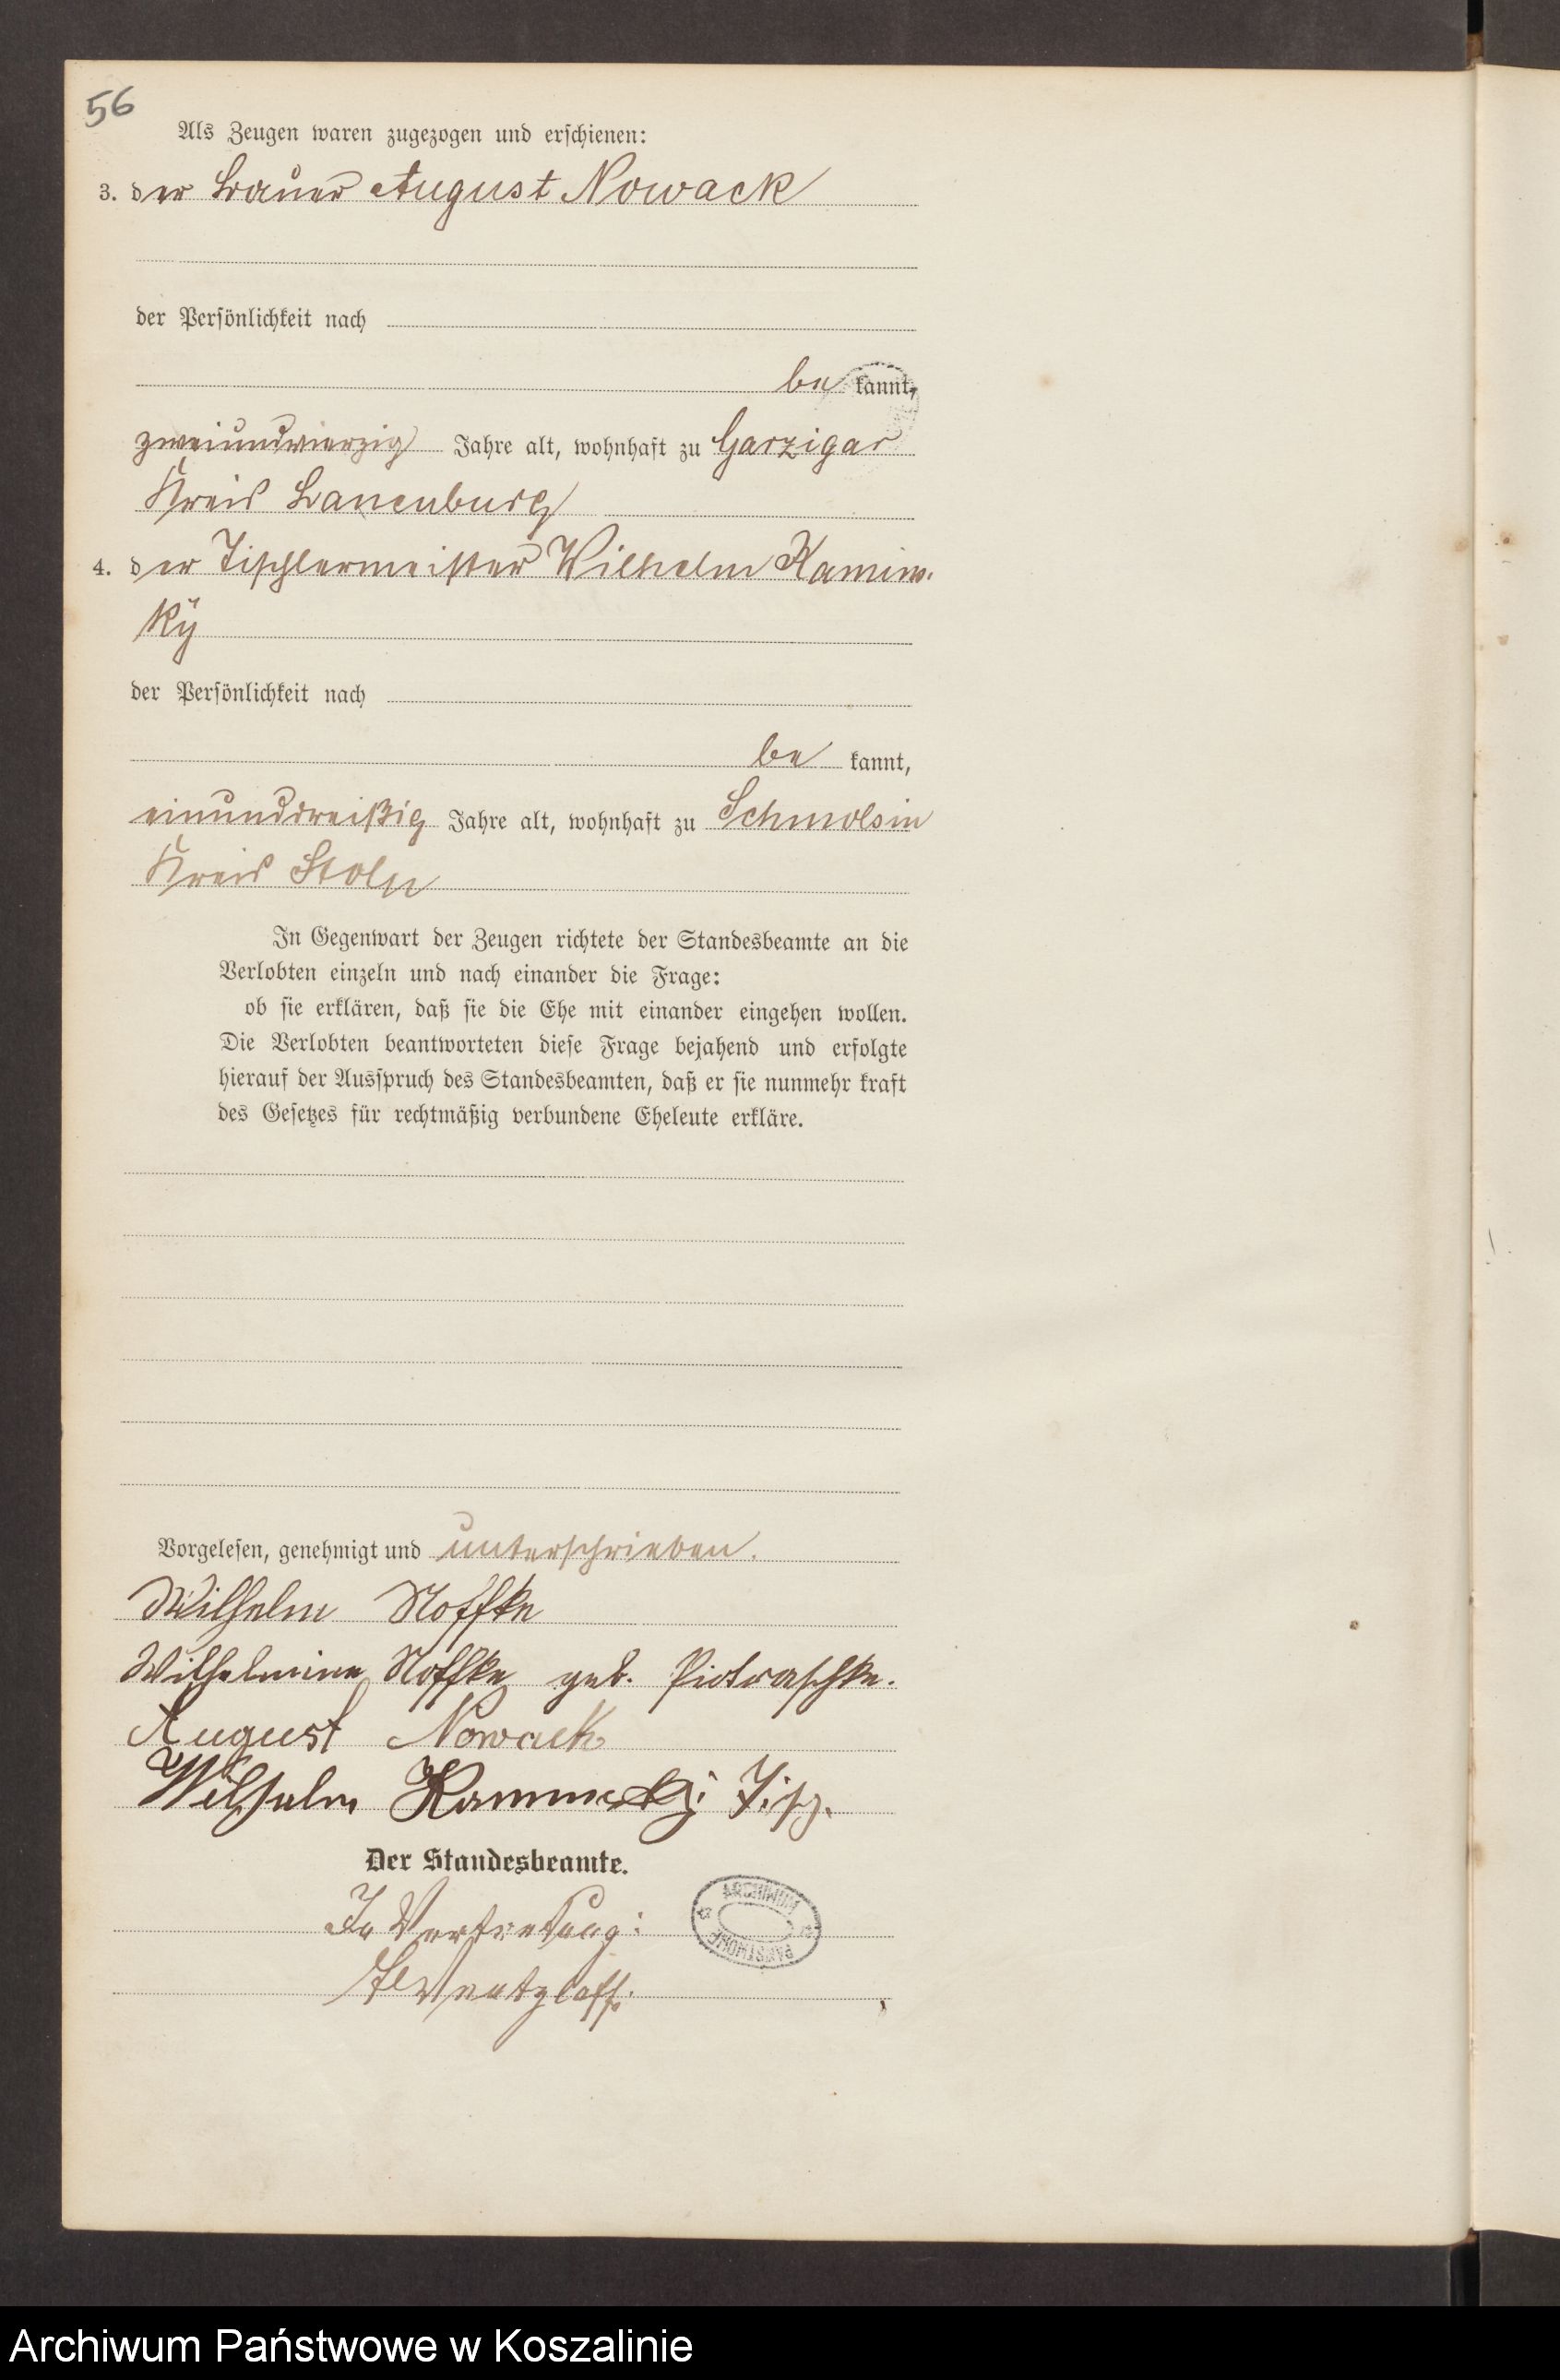 56
Als Zeugen waren zugezogen und erschienen:
3. der Bauer August Nowack
der Persönlichkeit nach
be kannt,
zweiundvierzig Jahre alt, wohnhaft zu Garzigar
Kreis Lauenburg
4. der Tischlermeister Wilhelm Kamins-
ky
der Persönlichkeit nach
be kannt,
einunddreißig Jahre alt, wohnhaft zu Schmolsin
Kreis Stolp
In Gegenwart der Zeugen richtete der Standesbeamte an die
Verlobten einzeln und nach einander die Frage:
ob sie erklären, daß sie die Ehe mit einander eingehen wollen.
Die Verlobten beantworteten diese Frage bejahend und erfolgte
hierauf der Ausspruch des Standesbeamten, daß er sie nunmehr kraft
des Gesetzes für rechtmäßig verbundene Eheleute erkläre.
Vorgelesen, genehmigt und unterschrieben.
Wilhelm Noffke
Wilhelmine Noffke geb. Piotraschke.
August Nowack
Wilhelm Tisch.
Der Standesbeamte.
In Vertretung:
ARCHIWUM
PAŃSTWOWE
Archiwum Państwowe w Koszalinie